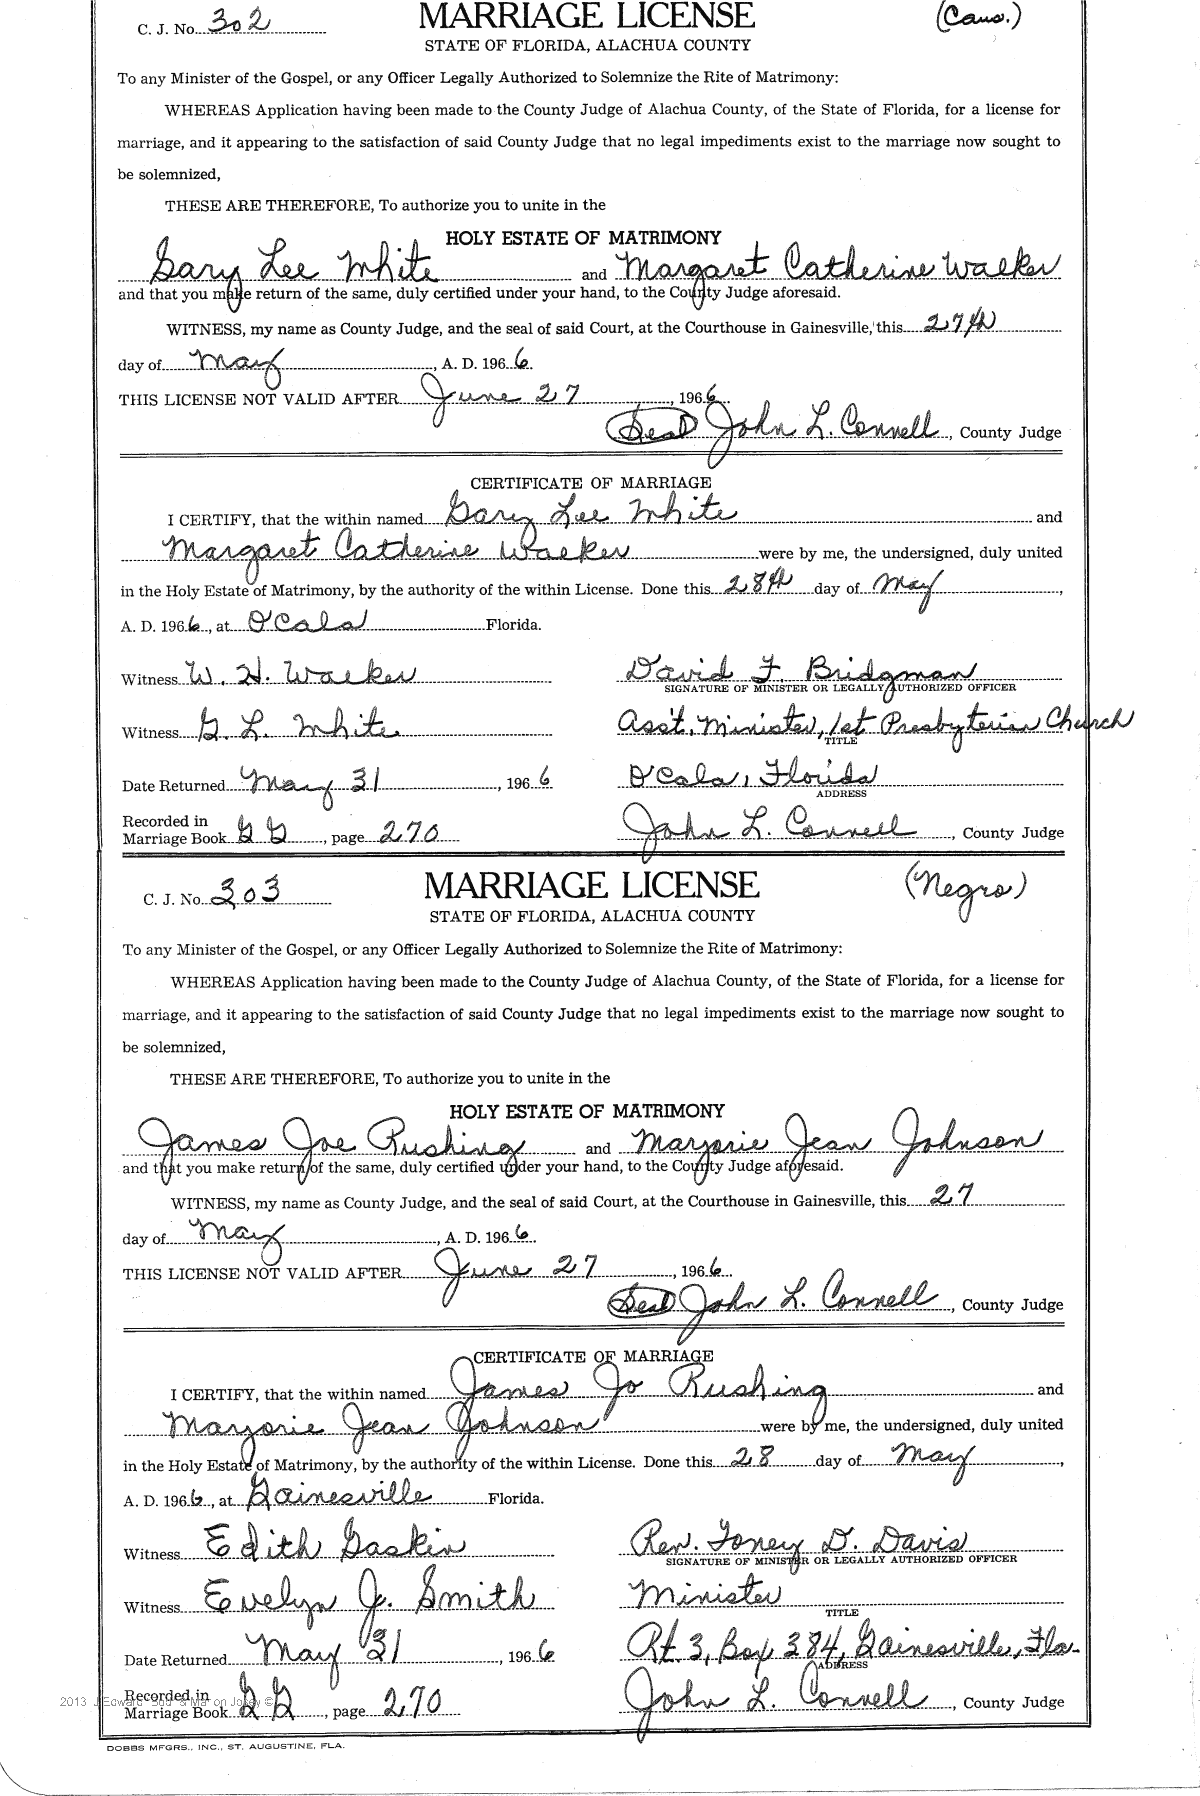 C. J. No. 302
MARRIAGE LICENSE
(Caus.)
STATE OF FLORIDA, ALACHUA COUNTY
To any Minister of the Gospel, or any Officer Legally Authorized to Solemnize the Rite of Matrimony:
WHEREAS Application having been made to the County Judge of Alachua County, of the State of Florida, for a license for
marriage, and it appearing to the satisfaction of said County Judge that no legal impediments exist to the marriage now sought to
be solemnized,
THESE ARE THEREFORE, To authorize you to unite in the
HOLY ESTATE OF MATRIMONY
Gary Lee White and Margaret Catherine Walker
and that you make return of the same, duly certified under your hand, to the County Judge aforesaid.
WITNESS, my name as County Judge, and the seal of said Court, at the Courthouse in Gainesville, this 27th
day of May, A. D. 1966.
THIS LICENSE NOT VALID AFTER June 27, 1966.
(Seal) John L. Connell, County Judge
CERTIFICATE OF MARRIAGE
I CERTIFY, that the within named Gary Lee White and
Margaret Catherine Walker were by me, the undersigned, duly united
in the Holy Estate of Matrimony, by the authority of the within License. Done this 28th day of May,
A. D. 1966, at O'Cala Florida.
Witness W. H. Walker
David F. Bridgman
SIGNATURE OF MINISTER OR LEGALLY AUTHORIZED OFFICER
Witness G. L. White
Ass't. Minister, 1st Presbyterian Church
TITLE
Date Returned May 31, 1966
O'Cala, Florida
ADDRESS
Recorded in
Marriage Book GG, page 270
John L. Connell, County Judge
C. J. No. 303
MARRIAGE LICENSE
(Negro)
STATE OF FLORIDA, ALACHUA COUNTY
To any Minister of the Gospel, or any Officer Legally Authorized to Solemnize the Rite of Matrimony:
WHEREAS Application having been made to the County Judge of Alachua County, of the State of Florida, for a license for
marriage, and it appearing to the satisfaction of said County Judge that no legal impediments exist to the marriage now sought to
be solemnized,
THESE ARE THEREFORE, To authorize you to unite in the
HOLY ESTATE OF MATRIMONY
James Joe Rushing and Marjorie Jean Johnson
and that you make return of the same, duly certified under your hand, to the County Judge aforesaid.
WITNESS, my name as County Judge, and the seal of said Court, at the Courthouse in Gainesville, this 27
day of May, A. D. 1966.
THIS LICENSE NOT VALID AFTER June 27, 1966.
(Seal) John L. Connell, County Judge
CERTIFICATE OF MARRIAGE
I CERTIFY, that the within named James Jo Rushing and
Marjorie Jean Johnson were by me, the undersigned, duly united
in the Holy Estate of Matrimony, by the authority of the within License. Done this 28 day of May,
A. D. 1966, at Gainesville Florida.
Witness Edith Gaskin
Rev. Toney D. Davis
SIGNATURE OF MINISTER OR LEGALLY AUTHORIZED OFFICER
Witness Evelyn J. Smith
Minister
TITLE
Date Returned May 31, 1966
Rt. 3, Box 384, Gainesville, Fla.
ADDRESS
Recorded in
Marriage Book GG, page 270
John L. Connell, County Judge
DOBBS MFGRS., INC., ST. AUGUSTINE, FLA.
2013 ©